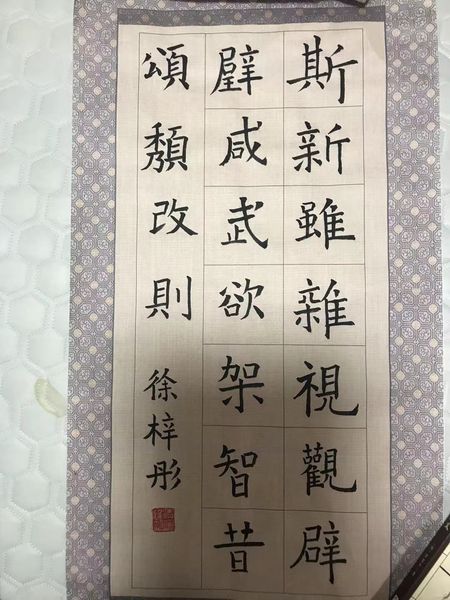 斯新雖雜視觀辟
璧咸武欲架智昔
頌頽改則
徐梓彤